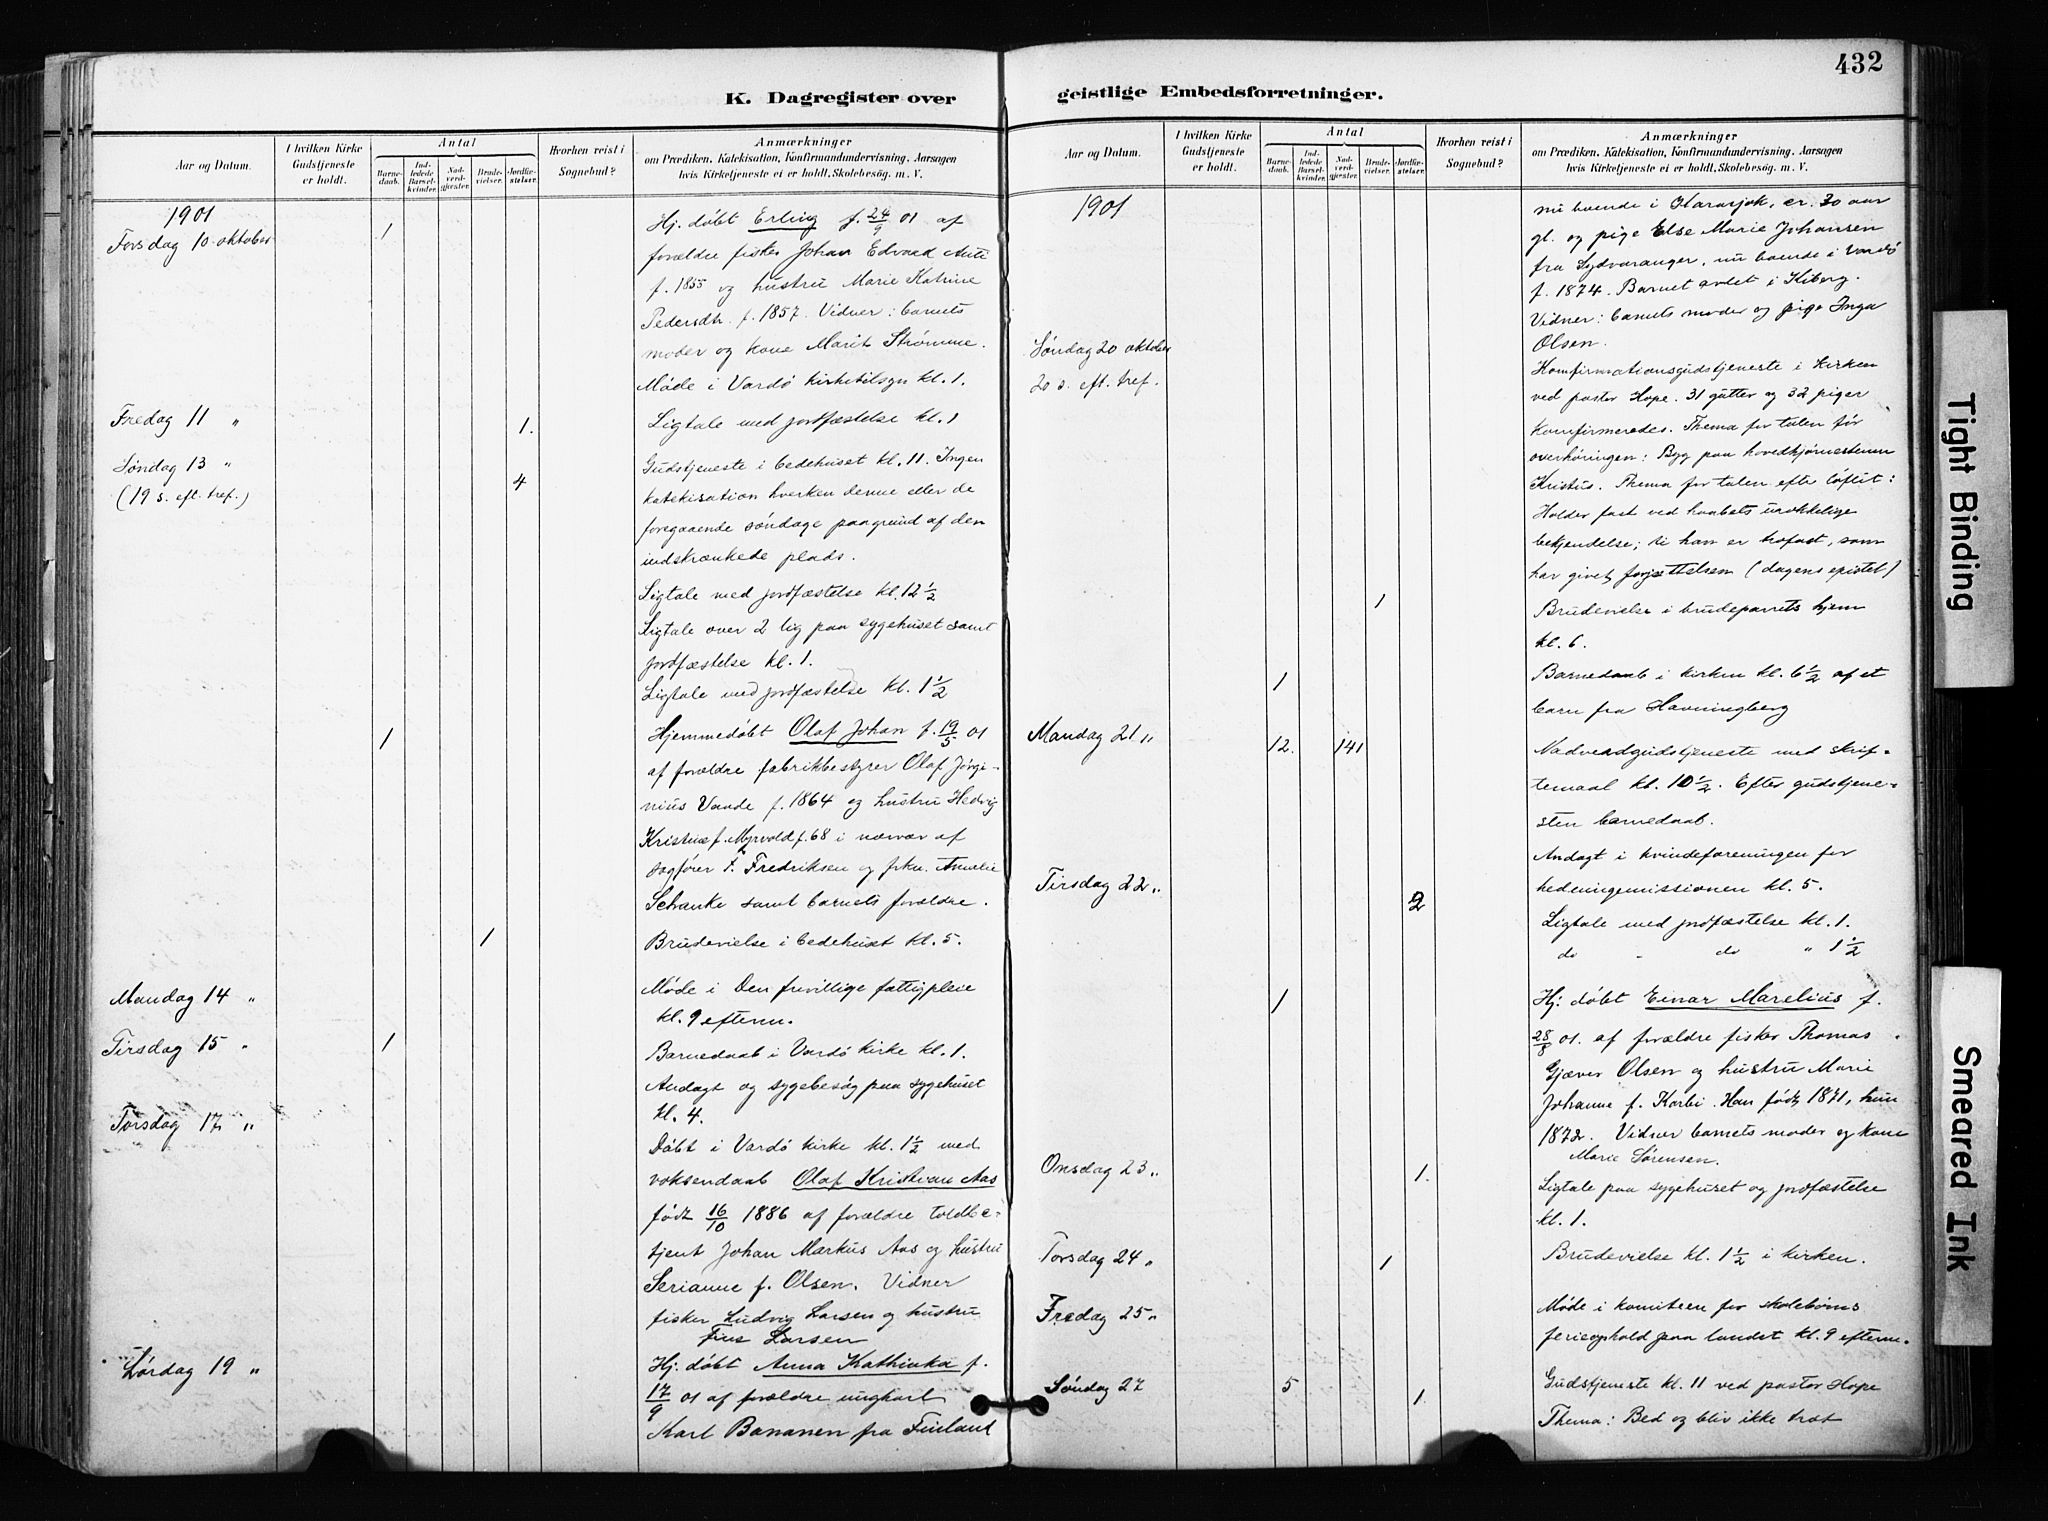 432
K. Dagregister over
geistlige Embedsforretninger.
Aar og Datum.
I hvilken Kirke
Gudstjeneste
er holdt.
Antal
Barne-
daab.
Ind-
ledede
Barsel-
kvinder.
Nad-
verd-
gjester.
Brude-
vielser.
Jordfæ-
stelser.
Hvorhen reist i
Sognebud?
Anmærkninger
om Prædiken, Katekisation, Konfirmandundervisning. Aarsagen
hvis Kirketjeneste ei er holdt, Skolebesøg. m. V.
1901
Torsdag 10 oktober
1
Hj. døbt Erling f. 24/9 01 af
forældre fisker Johan Edvard Anti
f. 1855 og hustru Marie Katrine
Pedersdtr. f. 1857. Vidner: barnets
moder og kone Marit Strømme.
Møde i Vardö kirketilsyn kl. 1.
Fredag 11 "
1.
Ligtale med jordfæstelse kl. 1
Søndag 13 "
(19 s. eft. tref.)
4
Gudstjeneste i bedehuset kl. 11. Ingen
katekisation hverken denne eller de
foregaaende söndage paagrund af den
indskrænkede plads.
Ligtale med jordfæstelse kl. 12 1/2
Ligtale over 2 lig paa sygehuset samt
jordfæstelse kl. 1.
Ligtale med jordfæstelse kl. 1 1/2
1
Hjemmedøbt Olaf Johan f. 19/5 01
af forældre fabrikbestyrer Olaf Jørgi-
nius Vande f. 1864 og hustru Hedvig
Kristine f. Myrvold f. 68 i nærvær af
sagfører F. Fredriksen og frkn. Amelie
Schanke samt barnets forældre.
1
Brudevielse i bedehuset kl. 5.
Mandag 14 "
Møde i Den frivillige fattigpleie
kl. 9 efterm.
Tirsdag 15 "
1
Barnedaab i Vardö kirke kl. 1.
Andagt og sygebesög paa sygehuset
kl. 4.
Torsdag 17 "
Döbt i Vardö kirke kl. 1 1/2 med
voksendaab Olaf Kristian Aas
født 16/10 1886 af forældre toldbe-
tjent Johan Markus Aas og hustru
Serianne f. Olsen. Vidner
fisker Ludvig Larsen og hustru
Fine Larsen
Lørdag 19 "
Hj. døbt Anna Kathinka f.
17/9 01 af forældre ungkarl
Karl Bananen fra Finland
Aar og Datum.
I hvilken Kirke
Gudstjeneste
er holdt.
Antal
Barne-
daab.
Ind-
ledede
Barsel-
kvinder.
Nad-
verd-
gjester.
Brude-
vielser.
Jordfæ-
stelser.
Hvorhen reist i
Sognebud?
Anmærkninger
om Prædiken, Katekisation, Konfirmandundervisning. Aarsagen
hvis Kirketjeneste ei er holdt, Skolebesøg. m. V.
1901
nu boende i Karasjok, er 30 aar
gl. og pige Else Marie Johansen
fra Sydvaranger, nu boende i Vardö
f. 1874. Barnet avlet i Kiberg.
Vidner: barnets moder og pige Inga
Olsen.
Søndag 20 oktober
20 s. eft. tref.
Konfirmationsgudstjeneste i kirken
ved pastor Hope. 31 gutter og 32 piger
konfirmeredes. Thema for talen før
overhøringen: Byg paa hovedhjørnestenen
Kristus. Thema for talen efter løftet:
Holder fast ved haabets urokkelige
bekjendelse; ti han er trofast, som
har givet forjættelsen (dagens epistel)
1
Brudevielse i brudeparrets hjem
kl. 6.
1
Barnedaab i kirken kl. 6 1/2 af et
barn fra Havningberg
Mandag 21 "
12. 141
Nadverdgudstjeneste med skrif-
temaal kl. 10 1/2. Efter gudstjene-
sten barnedaab.
Andagt i kvindeforeningen for
hedningemissionen kl. 5.
Tirsdag 22 "
2
Ligtale med jordfæstelse kl. 1.
do " do " 1 1/2
1
Hj. døbt Einar Marelius f.
28/8 01. af forældre fisker Thomas
Gjæver Olsen og hustru Marie
Johanne f. Korbi. Han født 1871, hun
1872. Vidner barnets moder og kone
Marie Sørensen.
Onsdag 23 "
1.
Ligtale paa sygehuset og jordfæstelse
kl. 1.
Torsdag 24 "
1
Brudevielse kl. 1 1/2 i kirken.
Fredag 25 "
Møde i komiteen for skolebørns
ferieophold paa landet kl. 9 efterm.
Søndag 27
5 1.
Gudstjeneste kl. 11 ved pastor Hope
Thema: Bed og bliv ikke træt
Tight Binding
Smeared Ink